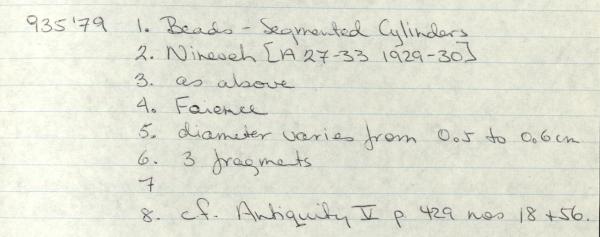 935'79 1. Beads - Segmented Cylinders
2. Nineveh [A 27-33 1929-30]
3. as above
4. Faience
5. diameter varies from 0.5 to 0.6 cm
6. 3 fragments
7
8. cf. Antiquity V p. 429 nos 18 + 56.